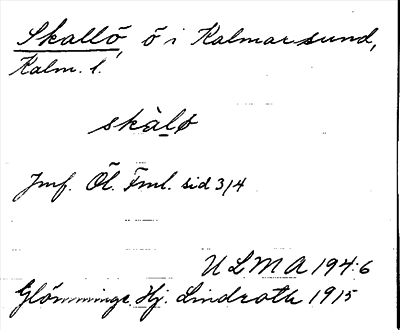 Skallö, ö i Kalmarsund,
Kalm. l.
skàlø
Jmf. Öl. Fml. sid 314
ULMA 194:6
Glömminge. Hj. Lindroth 1915